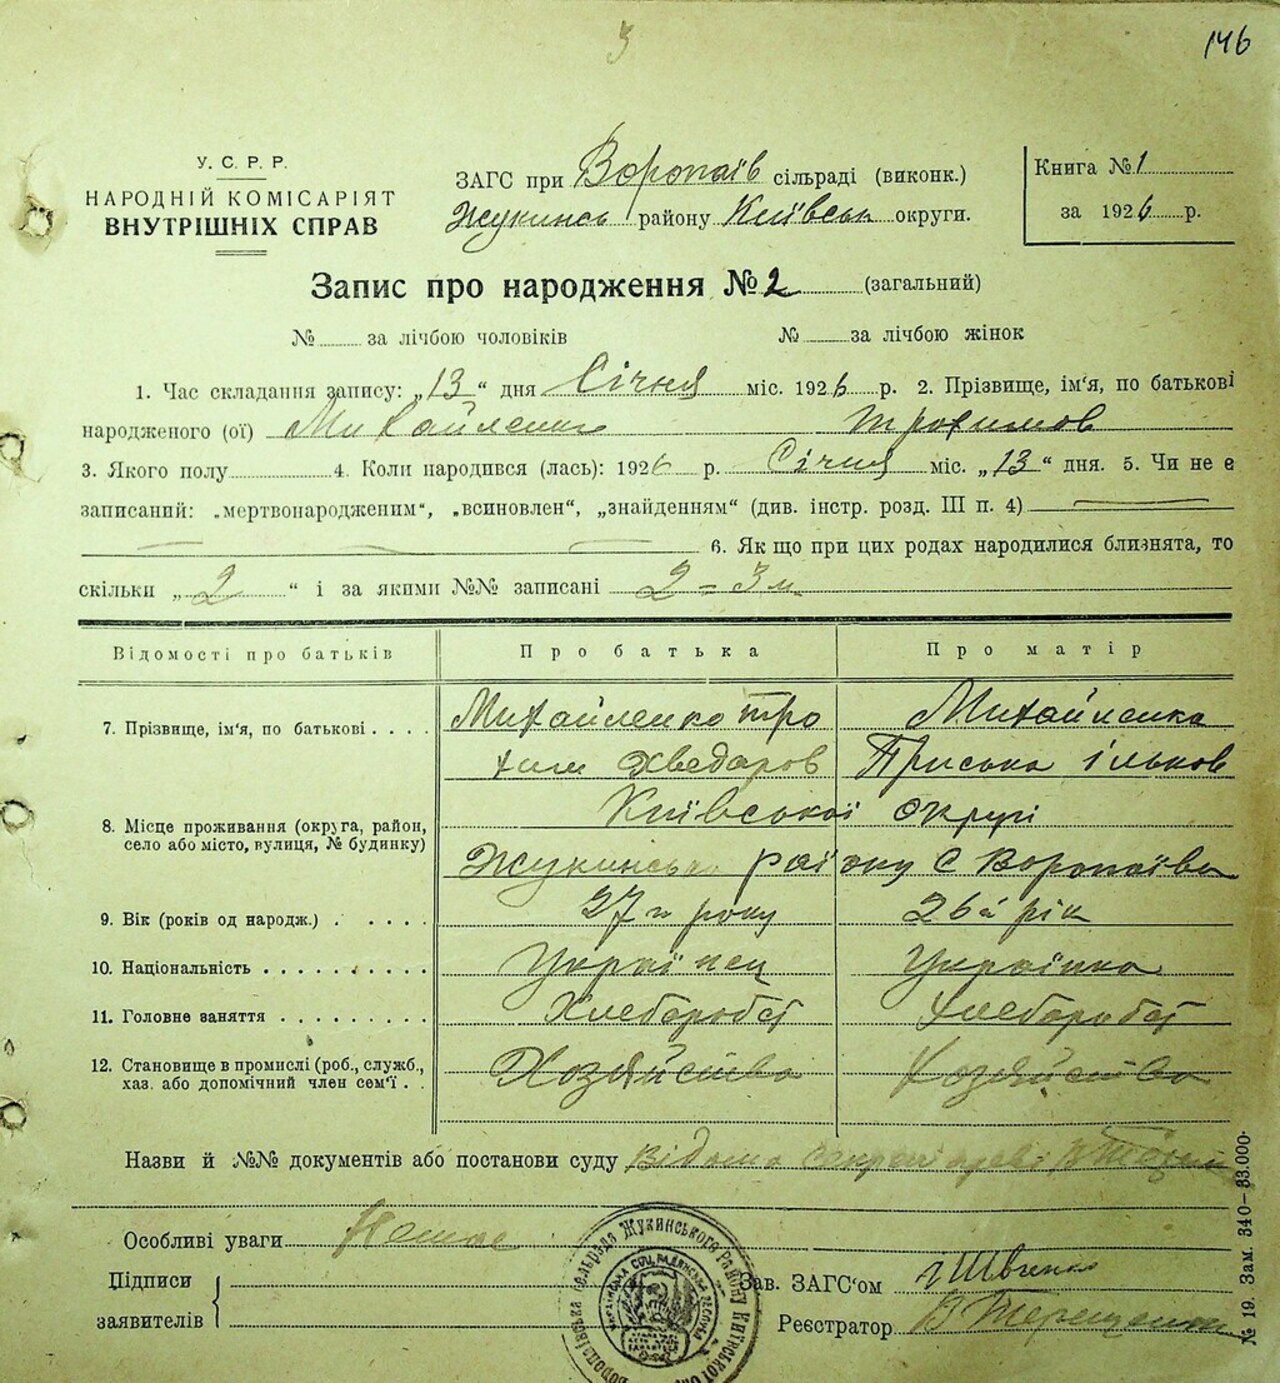 146
3
У. С. Р. Р.
НАРОДНІЙ КОМІСАРІЯТ
ВНУТРІШНІХ СПРАВ
ЗАГС при Воропаїв сільраді (виконк.)
Жукинсь району Київськ округи.
Книга № 1
за 1926 р.
Запис про народження № 2 (загальний)
№ за лічбою чоловіків № за лічбою жінок
1. Час складання запису: „13“ дня Січня міс. 1926 р. 2. Прізвище, ім‘я, по батькові
народженого (ої) Михайленко трохимов
3. Якого полу 4. Коли народився (лась): 1926 р. Січня міс. „13“ дня. 5. Чи не є
записаний: „мертвонародженим“, „всиновлен“, „знайденням“ (див. інстр. розд. III п. 4)
6. Як що при цих родах народилися близнята, то
скільки „2“ і за якими №№ записані 2 = 3 м.
Відомості про батьків Про батька Про матір
7. Прізвище, ім‘я, по батькові Михайленко тро Михайленко
хим Хведаров Приська ільков
Київської округі
8. Місце проживання (округа, район,
село або місто, вулиця, № будинку) Жукинсько району С Воропаїв
9. Вік (років од народж.) 27 й року 26 й рік
10. Національність Українец Українка
11. Головне заняття Хлеборобст Хлеборобст
12. Становище в промислі (роб., служб.,
хаз. або допомічний член сем‘ї Хозяйства Хозяйства
Назви й №№ документів або постанови суду Відомо секретареві
Особливі уваги Немає
Підписи
заявителів
Зав. ЗАГС‘ом
Реєстратор В Терещенко
Воропаївська сельрада Жукинського району Київської Ок
№ 19. Зам. 340—33.000.